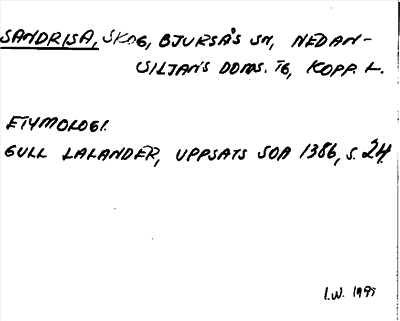 SANDRISA, SKOG, BJURSÅS SN, NEDAN-
SILJANS DOMS. TG, KOPP. L.
ETYMOLOGI.
GULL LALANDER, UPPSATS SOA 1386, S. 24.
I.W. 1995